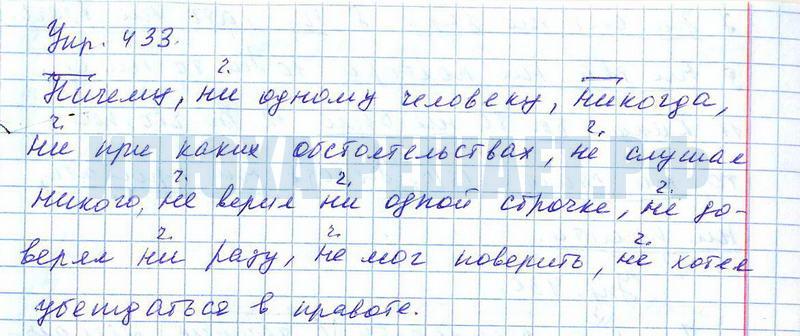 Упр. 433.
Ничему, ни одному человеку, никогда,
ни при каких обстоятельствах, не слушал
никого, не верил ни одной строчке, не до-
верял ни разу, не мог поверить, не хотел
убеждаться в правоте.